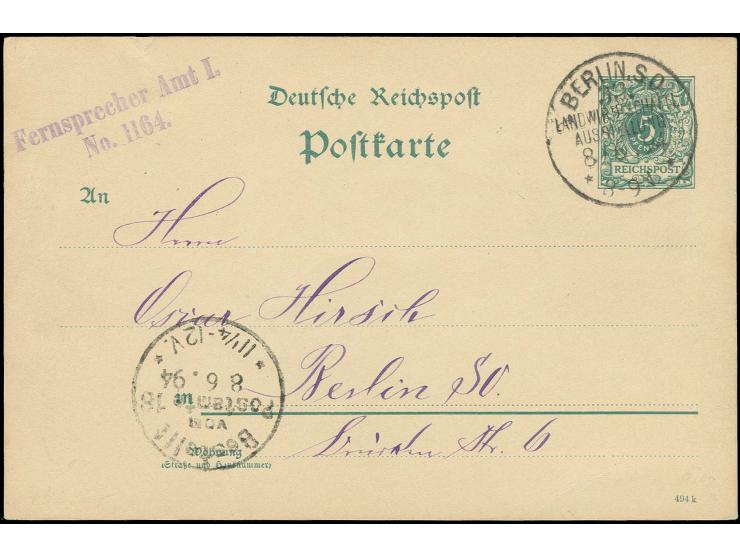 Fernsprecher Amt I.
No. 1164.
Deutsche Reichspost
Postkarte
BERLIN, S.O.
LANDWIRTHSCHAFTL.
8-9V.
5
REICHSPOST
An
Herrn
Oscar Hirsch
in Berlin SO.
Str. 6
Wohnung
(Straße und Hausnummer)
Bestellt
vom
Postamte 18
8 6. 94
11¼-12V.
494 k